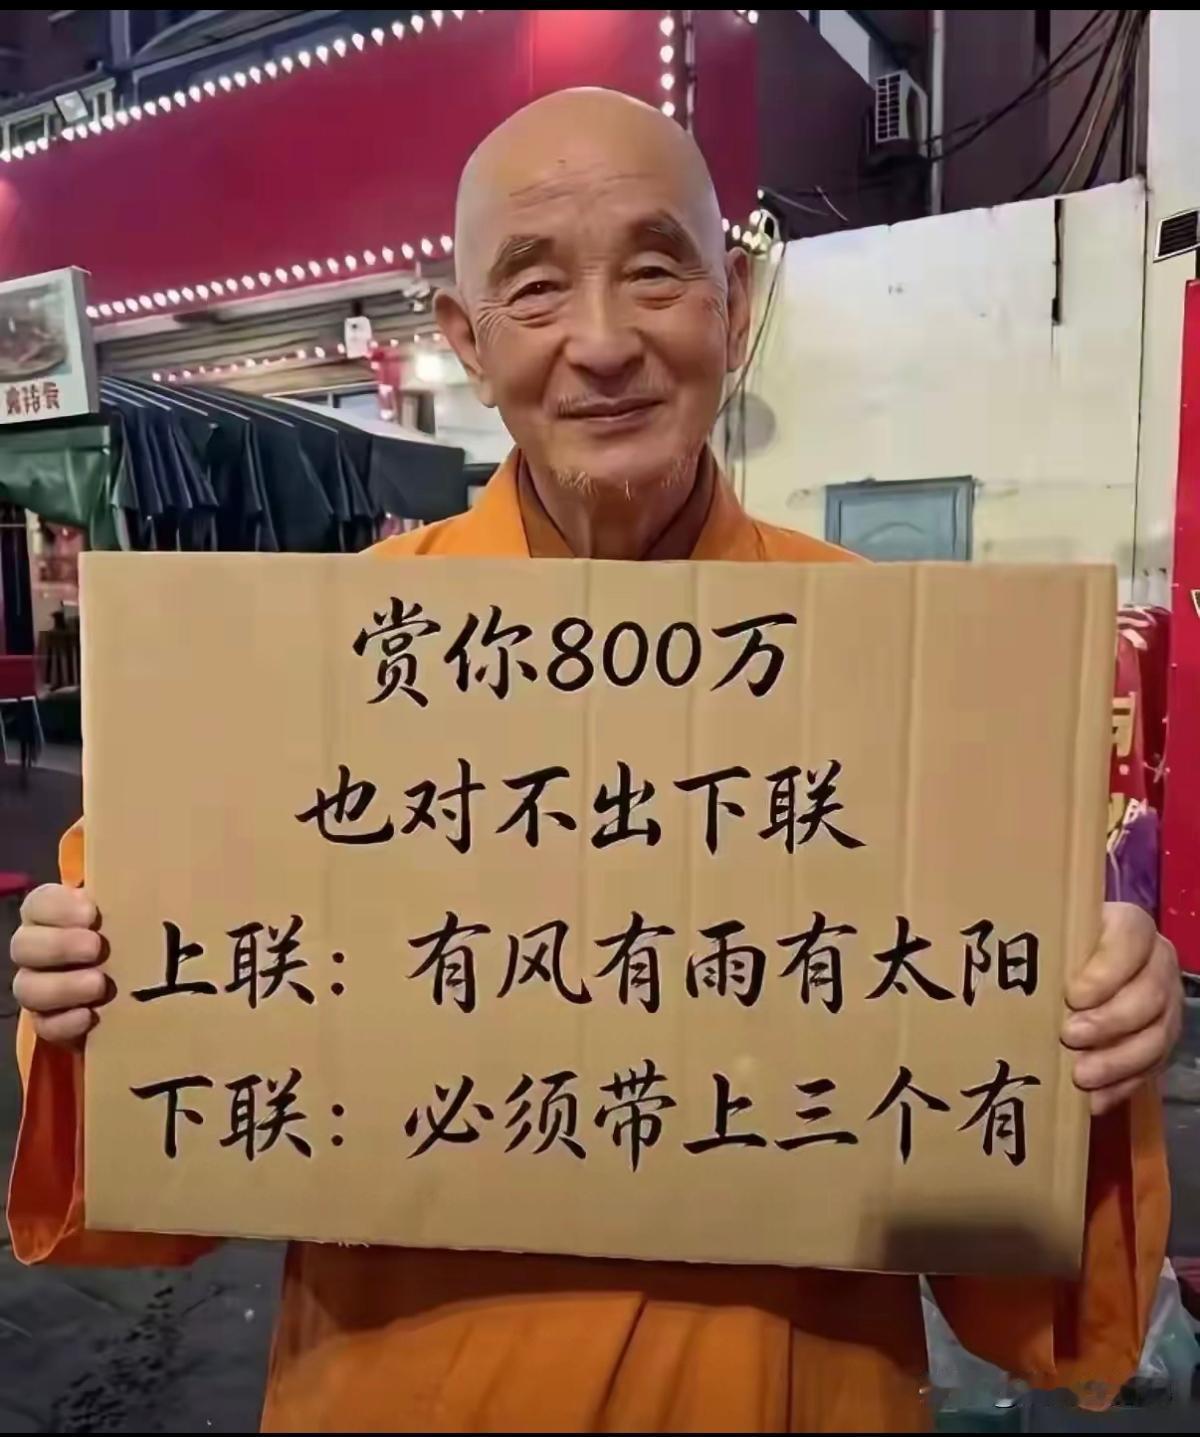 赏你800万
也对不出下联
上联：有风有雨有太阳
下联：必须带上三个有